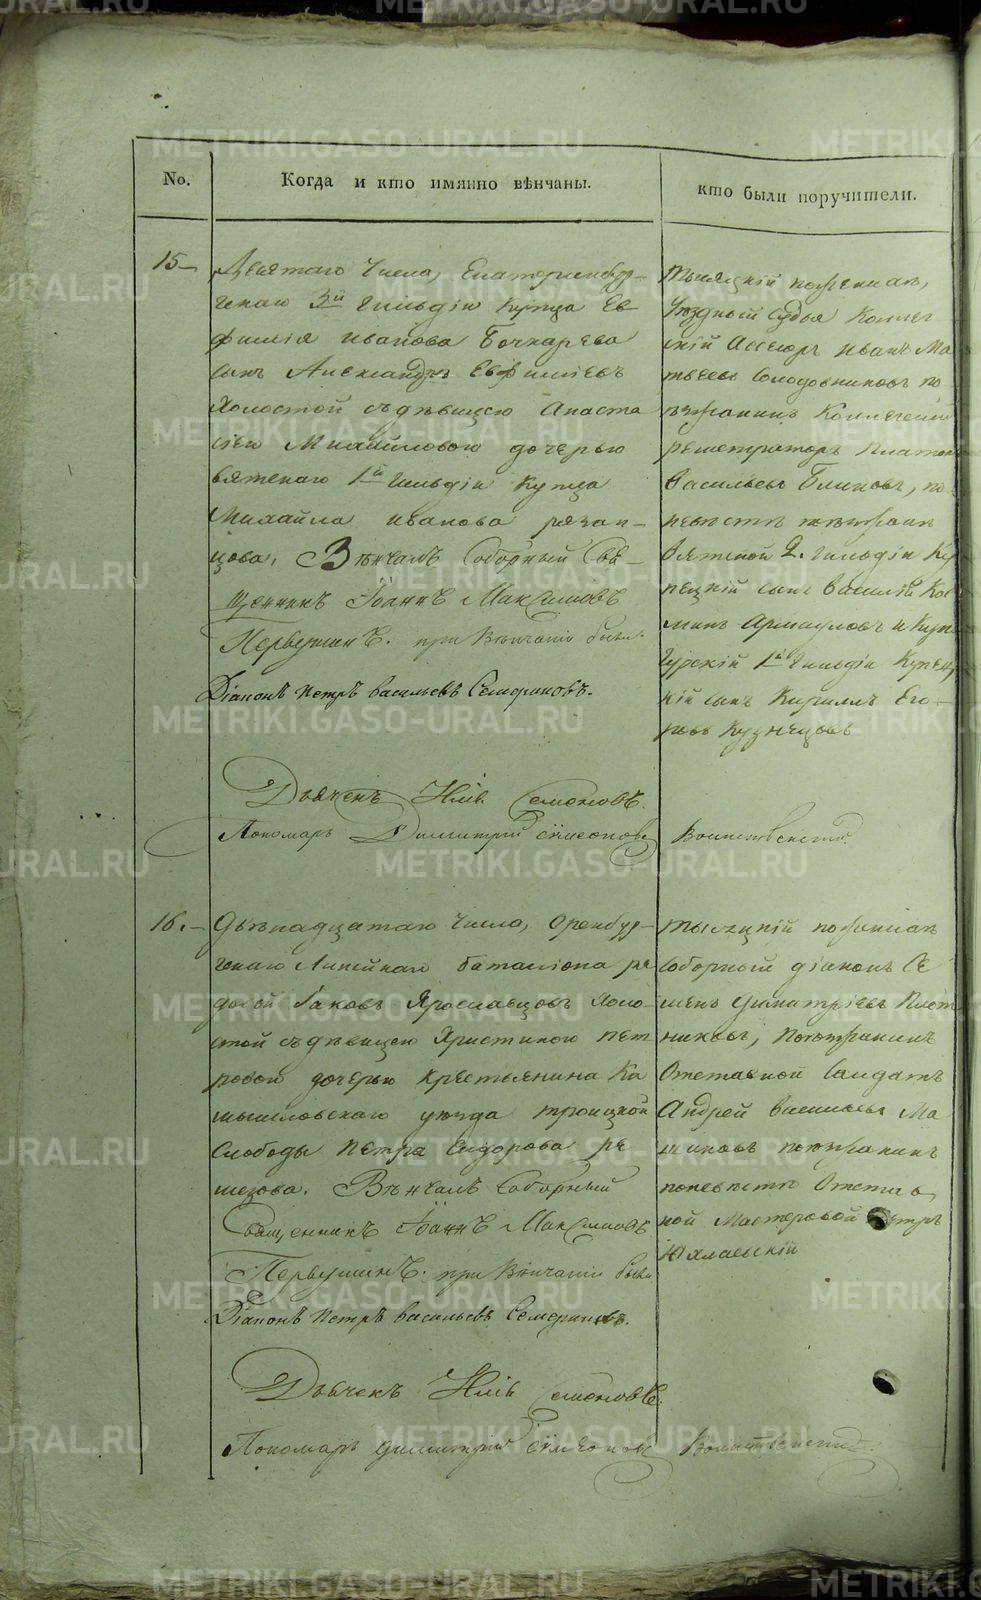 METRIKI.GASO-URAL.RU
No.
Когда и кто имянно вѣнчаны.
кто были поручители.
15
Девятаго числа, Екатеринбур-
гскаго 3й гильдіи купца Ев
фимія иванова Бочкарева
сынъ Александръ Евфиміевъ
холостой съ дѣвицею Анаста
сіею Михайловою дочерью
вятскаго 1й гильдіи купца
Михайла иванова рязан-
цова, Вѣнчалъ Соборный Свя-
щенникъ Іоаннъ Максимовъ
Первушинъ. при вѣнчаніи были
Діаконъ петръ васильевъ Семериковъ.
Дьячекъ Семеновъ.
Пономарь Димитрий Симеоновъ Воинственский
Тысяцкій поѣзжан
Уѣздный Судья Коллег
скій Ассесоръ иванъ Ма
твеевъ Солодовниковъ по
ѣзжанинъ Коллегскій
регистраторъ платон
васильевъ Блиновъ, по
невѣстѣ поѣзжан
вятской 2. гильдіи Ку
пецкій сынъ василій Коз
минъ и Кун
гурскій 1й гильдіи Купец
кій сынъ Кириллъ Его-
ровъ Кузнецовъ
16.
Двѣнадцатаго числа, Оренбур-
гскаго Линейнаго баталіона ря
довой Іаковъ Ярославцовъ холо-
стой съ дѣвицею Христиною пет
ровой дочерью Крестьянина Ка
мышловскаго уѣзда троицкой
слободы петра Сидорова ре
шетова. Вѣнчалъ Соборный
Священникъ Іоаннъ Максимовъ
Первушинъ. при Вѣнчаніи были
Діаконъ петръ васильевъ Семериковъ.
Дьячекъ Семеновъ.
Пономарь Димитрий Симеоновъ Воинственский
тысяцкій поѣзжан
Соборный діаконъ Се
менъ димитріевъ Плот
никовъ, поѣзжанинъ
Отставной Салдатъ
Андрей васильевъ Ма
шиновъ поѣзжанинъ
поневѣстѣ Отстав
ной Мастеровой петръ